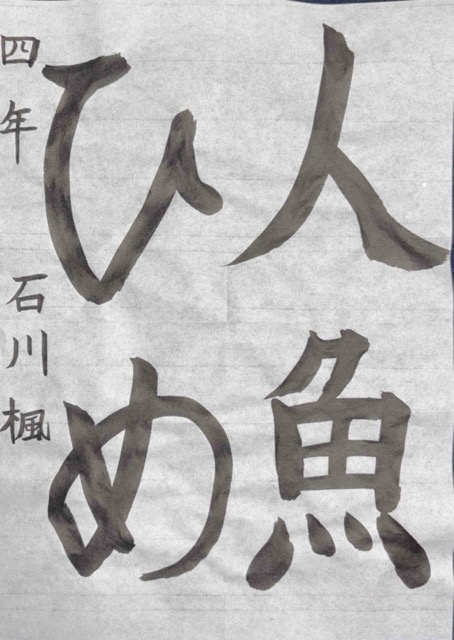 人魚
ひめ
四年 石川楓